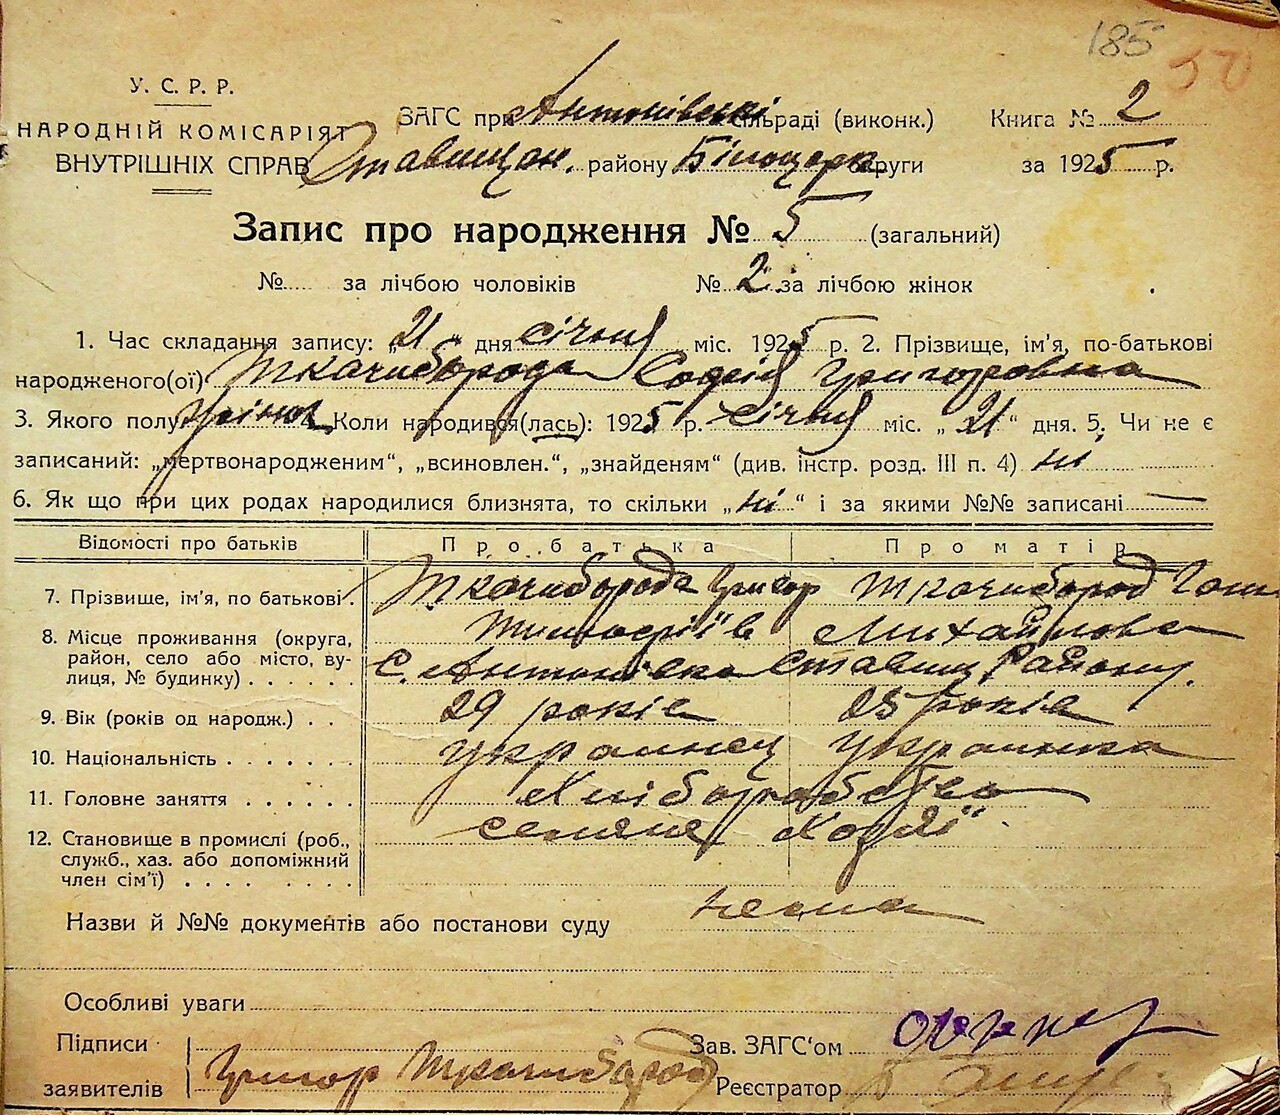 185 50
У. С. Р. Р.
НАРОДНІЙ КОМІСАРІЯТ
ВНУТРІШНІХ СПРАВ
ЗАГС при Антонівскі сільраді (виконк.) Книга № 2
Ставищан. району Білоцерк. округи за 1925 р.
Запис про народження № 5 (загальний)
№..... за лічбою чоловіків № 2 за лічбою жінок
1. Час складання запису: „21" дня січня міс. 1925 р. 2. Прізвище, ім'я, по-батькові
народженого(ої) Ткачиборода Софія Григоровна
3. Якого полу жіноч. 4. Коли народився(лась): 1925 р. січня міс. „21" дня. 5. Чи не є
записаний: „мертвонародженим", „всиновлен.", „знайденям" (див. інстр. розд. III п. 4) ні
6. Як що при цих родах народилися близнята, то скільки „ні" і за якими №№ записані —
Відомості про батьків Про батька Про матір
7. Прізвище, ім'я, по батькові. Ткачиборода Григор Ткачибород
Тимофіїв Михайлова
8. Місце проживання (округа, район, село або місто, ву-лиця, № будинку) . . . . . С. Антонівка Ставищ. Району.
9. Вік (років од народж.) . . 29 років 25 років
10. Національність . . . . . . . украинец украинка
11. Головне заняття . . . . . . Хліборобство
12. Становище в промислі (роб., служб., хаз. або допоміжний член сім'ї) . . . . . . . . селяне
Назви й №№ документів або постанови суду нема
Особливі уваги
Підписи заявителів Григор Ткачиборода
Зав. ЗАГС'ом
Реєстратор